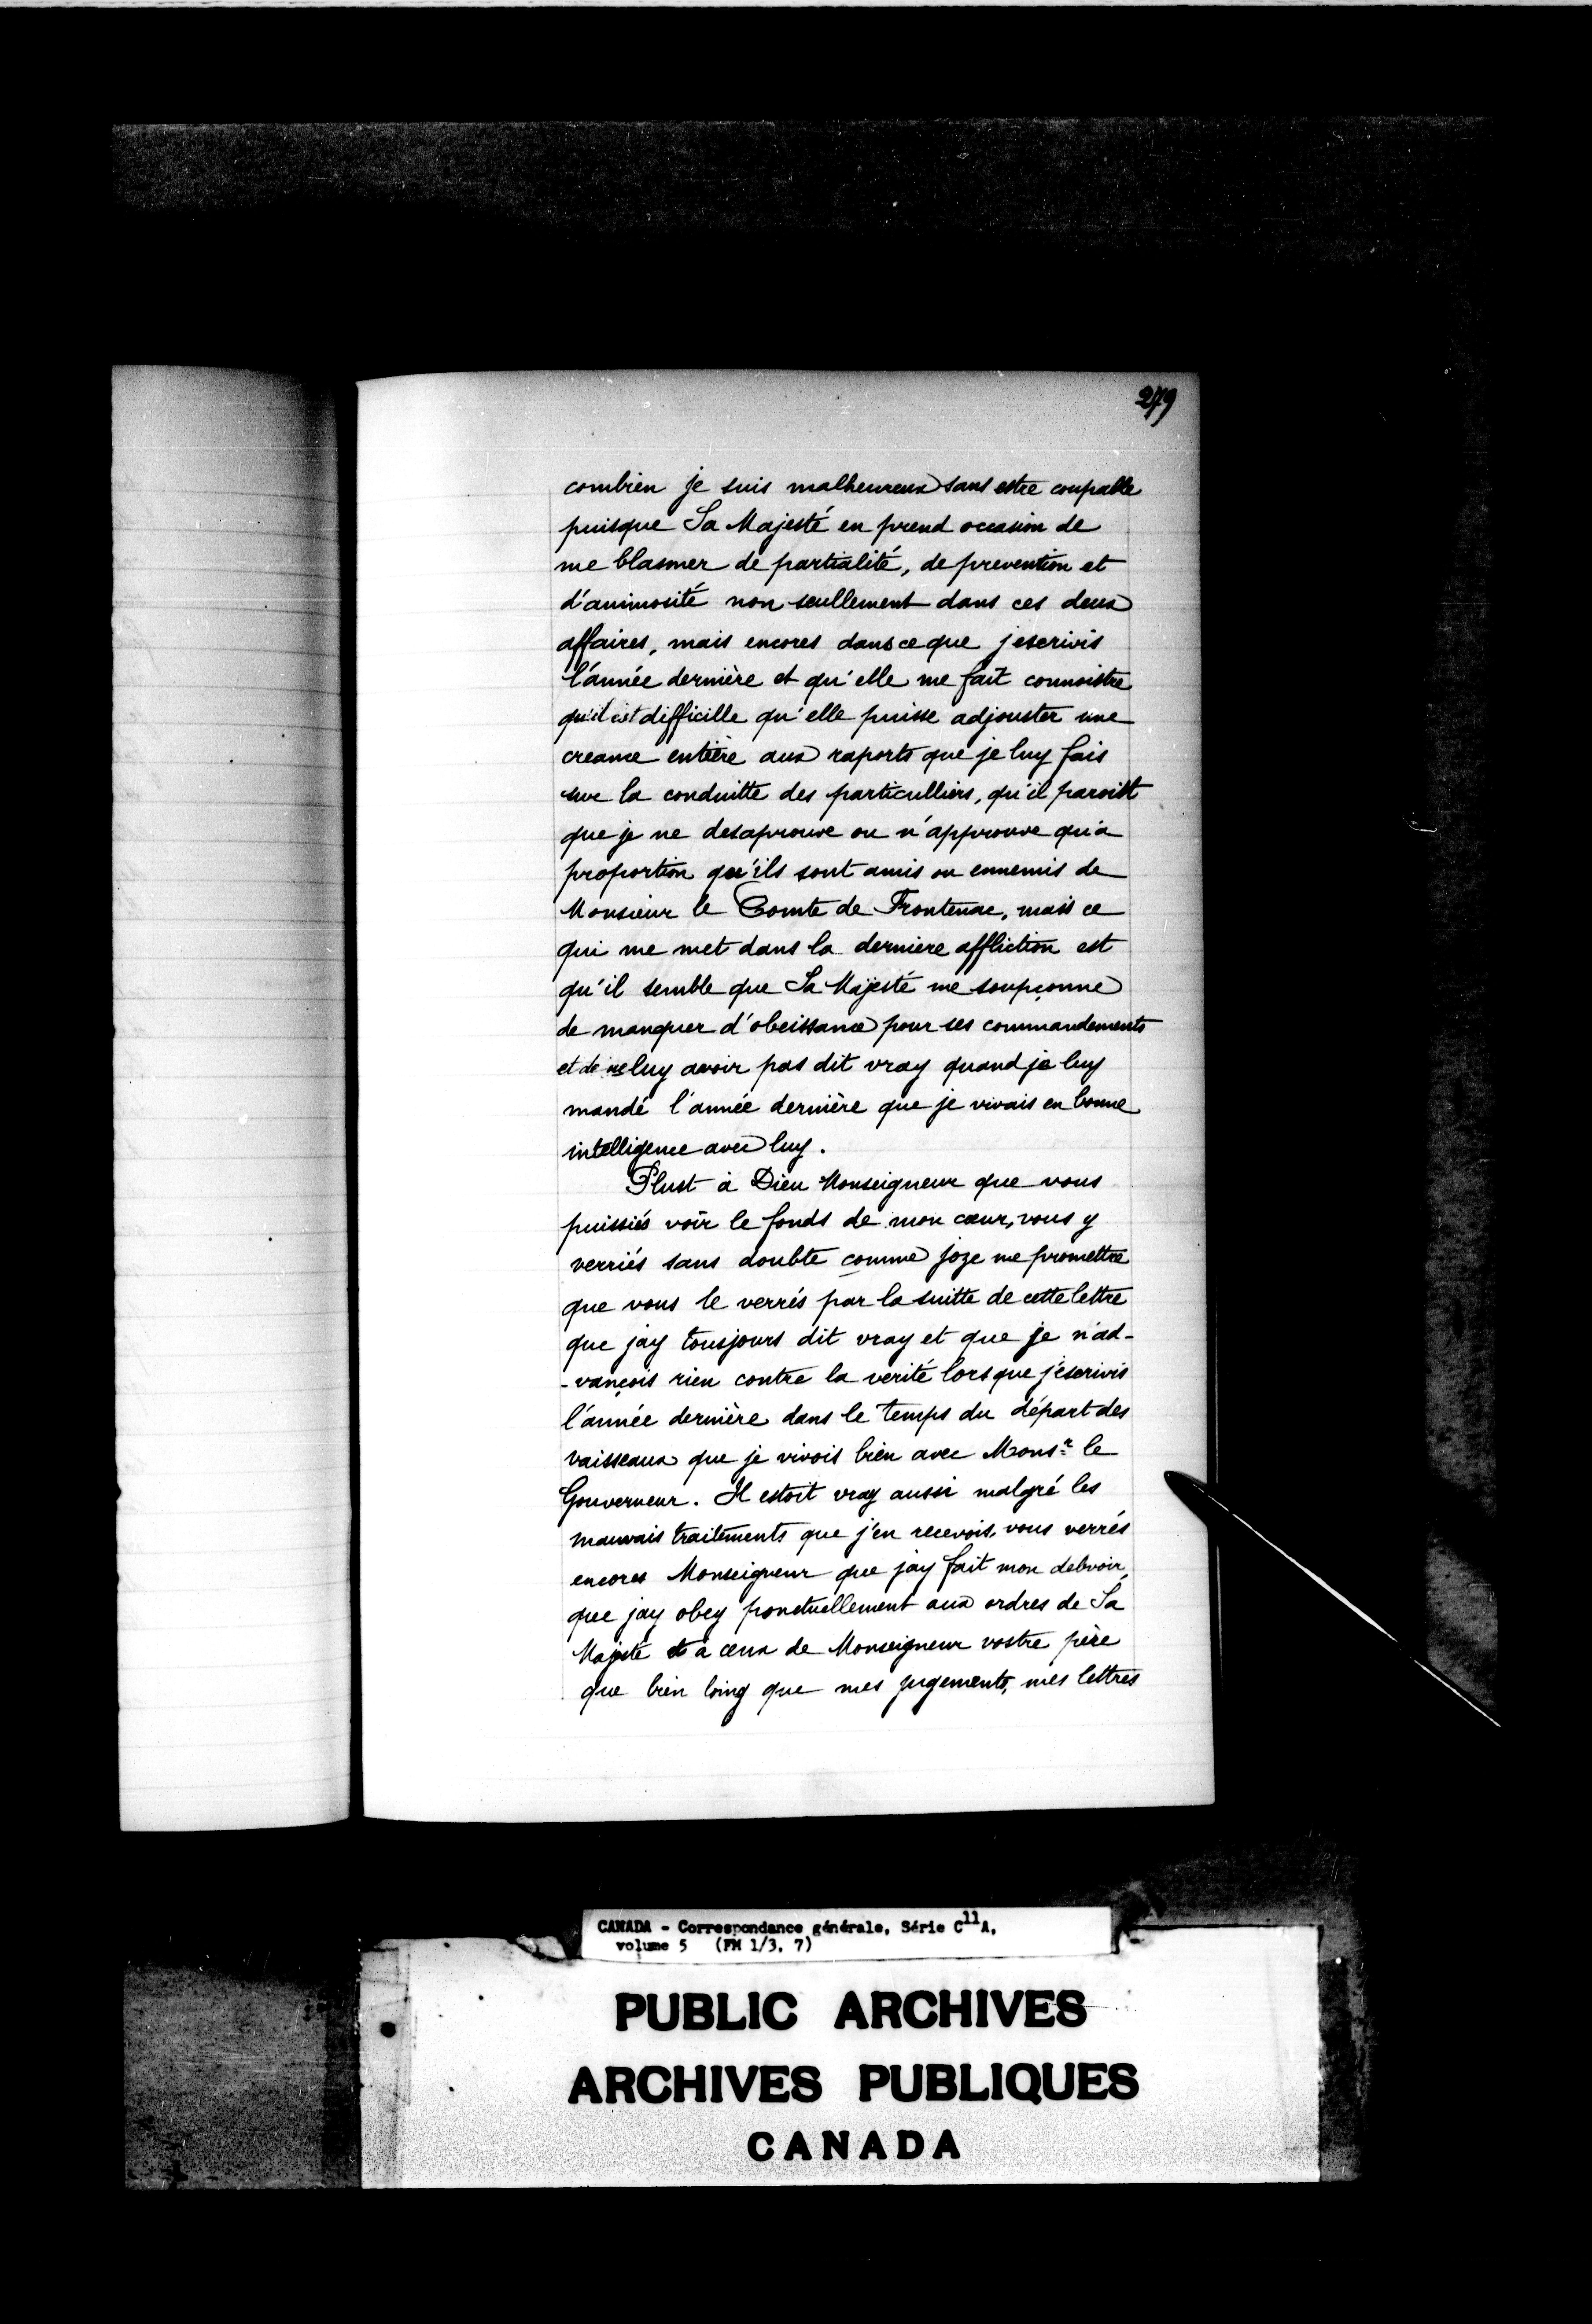 279
combien je suis malheureux sans estre coupable
puisque Sa Majesté en prend occasion de
me blasmer de partialité, de prevention et
d'animosité non seullement dans ces deux
affaires, mais encores dans ce que jescrivis
l'année dernière et qu'elle me fait connoistre
qu'il est difficille qu'elle puisse adjouster une
creance entière aux raports que je luy fais
sur la conduitte des particulliers, qu'il paroist
que je ne desaprouve ou n'approuve qu'a
proportion qu'ils sont amis ou ennemis de
Monsieur le Comte de Frontenac, mais ce
qui me met dans la derniere affliction est
qu'il semble que Sa Majesté me soupçonne
de manquer d'obeissance pour ses commandements
et de ne luy avoir pas dit vray quand je luy
mandé l'année dernière que je vivais en bonne
intelligence avec luy.
Plust à Dieu Monseigneur que vous
puissiés voir le fonds de mon cœur, vous y
verriés sans doubte comme joze me promettre
que vous le verrés par la suitte de cette lettre
que jay tousjours dit vray et que je n'ad-
-vançois rien contre la verité lorsque j'escrivis
l'année dernière dans le temps du départ des
vaisseaux que je vivois bien avec Monsr le
Gouverneur. Il estoit vray aussi malgré les
mauvais traitements que j'en recevois, vous verrés
encores Monseigneur que jay fait mon debvoir,
que jay obey ponctuellement aux ordres de Sa
Majesté et à ceux de Monseigneur vostre père
que bien loing que mes jugements, mes lettres
CANADA - Correspondance générale, Série C11A,
volume 5 (FM 1/3, 7)
PUBLIC ARCHIVES
ARCHIVES PUBLIQUES
CANADA